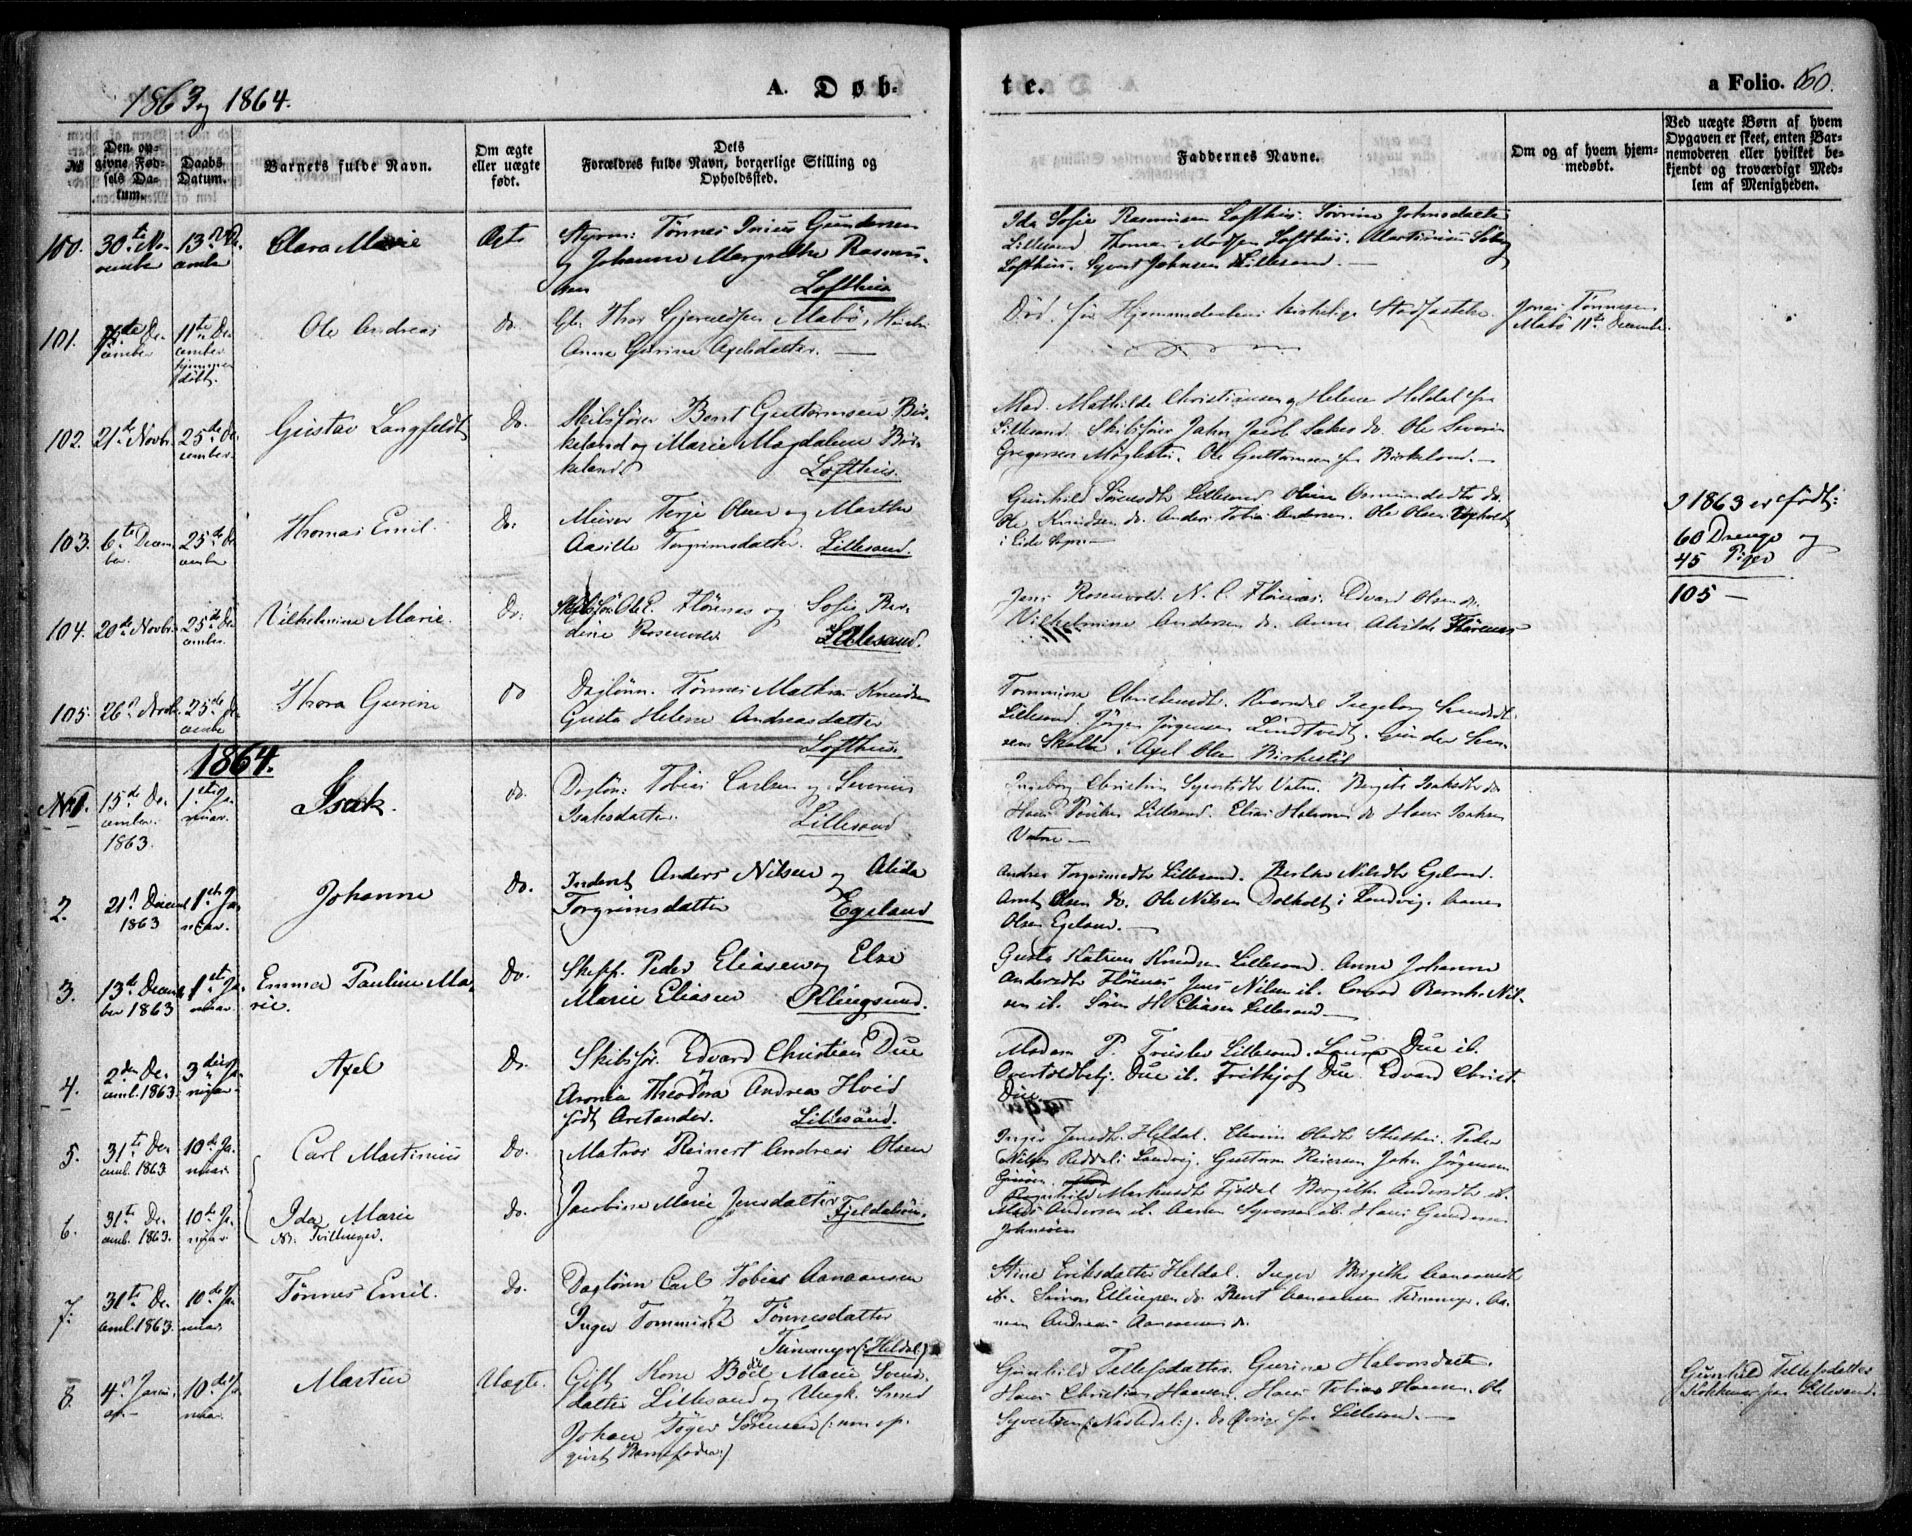 1863 og 1864.
A. Døb-
te.
a Folio. 60.
№
Den op-
givne Fød-
sels Da-
tum.
Daabs
Datum.
Barnets fulde Navn.
Om ægte
eller uægte
født.
Dets
Forældres fulde Navn, borgerlige Stilling og
Opholdssted.
Faddernes Navne.
Om og af hvem hjem-
medøbt.
Ved uægte Børn af hvem
Opgaven er skeet, enten Bar-
nemoderen eller hvilket be-
kjendt og troværdigt Med-
lem af Menigheden.
100. 30te No-
vember
13de De-
cember
Clara Marie
Ægte
Styrm: Tønnes Gundersen
og Johanne Margrethe Rasmu-
sen Lofthus
Ida Sofie Rasmusen Lofthus. Sørine Johnsdatter
Lillesand Thomas Madsen Lofthus. Martinius
Lofthus. Syvert Johnsen Lillesand. —
101. De-
cember
11te De-
cember
hjemme
døbt.
Ole Andreas
do.
Thor Gjeruldsen Mabø,
Anne Gurine Axelsdatter. —
Død før Hjemmedaabens kirkelige Stadfæstelse
Jens Tønnesen
Mabø 11te December
102. 21de Novbr.
25de De-
cember.
Gustav Langfeldt
Do.
Skibsfører Bent Guttormsen Bir-
keland og Marie Magdalene Bir-
keland. Lofthus.
Mad. Mathilde Christiansen og Helene Heldal fra
Lillesand. Skibsfører Jahn Jacob do. Ole Severin
Gregersen Møglestu. Ole Guttormsen fra Birkeland. —
103. 6te Decem-
ber.
25de De-
cember
Thomas Emil.
Do.
Murer Terje Olsen og Marthe
Aasille Torgrimsdatter. Lillesand.
Gunhild Sørensdtr Lillesand Oline Osmundsdtr do.
Ole Knudsen do. Anders Tobias Andersen. Ole Olsen
i Eide
I 1863 er født:
60 Drenge og
45 Piger
105 —
104. 20de Novbr.
25de De-
cember.
Vilhelmine Marie.
Do.
Skibsfør. Ole C. Flørenæs og Sofie Ber-
dine Rosenvold. Lillesand.
Jens Rosenvold. N. C. Flørenæs. Edvard Olsen do.
Vilhelmine Andersen do. Anne Alvilde Flørenæs
105. 26de Novbr.
25de De-
cember
Thora Gurine
do
Daglønn. Tønnes Mathias Knudsen
Gusta Helene Andreasdatter
Lofthus.
Tommine Ingeborg
Lillesand. Jørgen Jørgensen Lindtvedt. Gunder
Axel Olsen Birkestøl
1864.
No 1. 15de De-
cember.
1863.
1ste Ja-
nuar.
Isak.
do.
Dagløn: Tobias Carlsen og Severine
Isaksdatter. Lillesand
Ingeborg Christine Syvertsdtr Vatne. Bergitte Isaksdtr do
Hans Lillesand. Elias do Hans Isaksen
Vatne —
2. 21de Decemb
1863
1ste Ja-
nuar.
Johanne
Do.
Inderst Anders Nilsen og Alida
Torgrimsdatter Egeland
Andrea Torgrimsdtr Lillesand. Berthe Nilsdtr Egeland.
Arnt Olsen do. Ole Nilsen Dolholt i Landvig.
Olsen Egeland. —
3. 13de Decem-
ber 1863
1ste Ja-
nuar.
Emma Pauline Ma-
rie.
Do.
Skipp. Peder Eliasen og Else
Marie Eliasen Klingsund.
Gusta Katrine Knudsen Lillesand. Anne Johanne
Andersdtr Flørenæs Jens Nilsen ib. Conrad Bernh. Nil-
sen ib. Søren H. Eliasen Lillesand —
4. 2den De-
cemb. 1863.
3die Ja-
nuar.
Axel
Do.
Skibsfør. Edvard Christian Due
Aronia Theodora Andrea Hvid
født Aretander. Lillesand.
Madam P. Lillesand. Laura Due ib.
Overtoldbetj. Due ib. Frithjof Due. Edvard Christ.
Due.
5. 31te De-
cemb. 1863
10de Ja-
nuar
Carl Martinius
Do.
Matros Reinert Andreas Olsen
og
Inger Jensdtr Heldal. Olsdtr Peder
Nilsen Reddal i Landvig. Guttorm Reiersen John Jørgensen
6. 31te De-
cemb. 1863.
10de Ja-
nuar
Ida Marie
NB. Tvillinger.
Do.
Jacobine Marie Jensdatter Fjeldalsøen.
Ragnhild Markusdtr Fjeldal Bergithe Andersdtr ib.
Mads Andersen ib. Aanen Syversen ib. Hans Gundersen
7. 31te De-
cemb. 1863.
10de Ja-
nuar.
Tønnes Emil.
Do.
Daglønn Carl Tobias Aanonsen
og
Inger Tommine Tønnesdatter
(:Heldal:)
Stine Eriksdatter Heldal. Inger Birgithe
ib. Simon Ellingsen do. Bent Aanonsen
Andreas Aanonsen do.
8. 4de Janu-
ar —
10de Ja-
nuar.
Martin
Uægte.
Gift Kone Bodil Marie
datter Lillesand og Ungk. Smed
Johan Tøger Sørensen (: som op-
givet Barnefader:)
Gunhild Tellefsdatter. Gurine Halvorsdatter.
Hans Christian Hansen. Hans Tobias Hansen. Ole
Syvertsen (:Nadledal:). De Øvrige fra Lillesand. —
Gunhild Tellefsdatter
fra Lillesand.